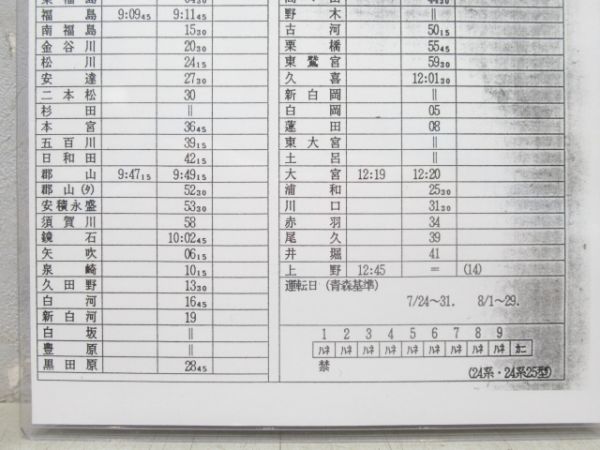 福島 9:09₄₅ 9:11₄₅
南福島 15₃₀
金谷川 20₃₀
松川 24₁₅
安達 27₃₀
二本松 30
杉田 ||
本宮 36₄₅
五百川 39₁₅
日和田 42₁₅
郡山 9:47₁₅ 9:49₁₅
郡山(タ) 52₃₀
安積永盛 53₃₀
須賀川 58
鏡石 10:02₄₅
矢吹 06₁₅
泉崎 10₁₅
久田野 13₃₀
白河 16₄₅
新白河 19
白坂 ||
豊原 ||
黒田原 28₄₅
野木 ||
古河 50₁₅
栗橋 55₄₅
東鷲宮 59₃₀
久喜 12:01₃₀
新白岡 ||
白岡 05
蓮田 08
東大宮 ||
土呂 ||
大宮 12:19 12:20
浦和 25₃₀
川口 31₃₀
赤羽 34
尾久 39
井堀 41
上野 12:45 = (14)
運転日(青森基準)
7/24～31. 8/1～29.
1 2 3 4 5 6 7 8 9
ハネ ハネ ハネ ハネ ハネ ハネ ハネ ハネ ハネ カニ
禁
(24系・24系25型)